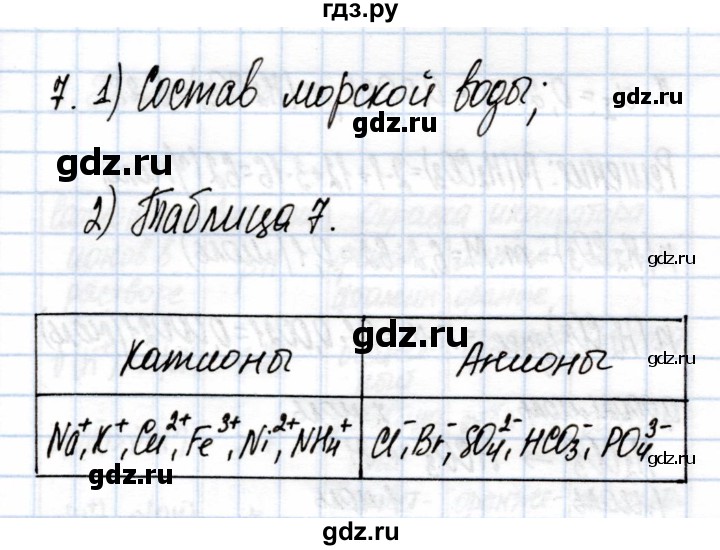 гдз.ру
7. 1) Состав морской воды;
gdz.ru
gdz.ru
gdz.ru
2) Таблица 7.
gdz.ru
gdz.ru
Катионы Анионы
Na⁺, K⁺, Cu²⁺, Fe³⁺, Ni²⁺, NH₄⁺ Cl⁻, Br⁻, SO₄²⁻, HCO₃⁻, PO₄³⁻
gdz.ru
gdz.ru
gdz.ru